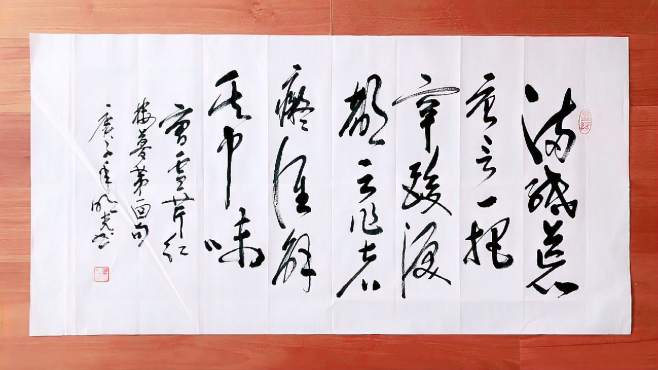 满紙荒
唐言一把
辛酸淚
都云作者
癡谁解
其中味
曹雪芹红
楼夢第一回句
庚子年